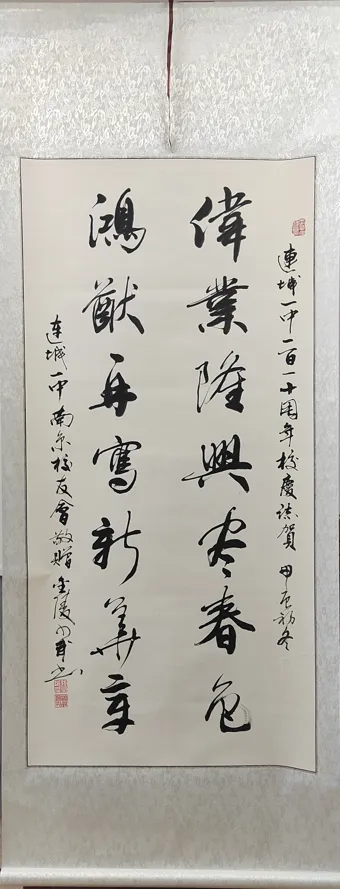 連城一中一百一十周年校慶誌賀 甲辰初冬
偉業隆興尽春色
鴻猷再寫新華章
连城一中南京校友會敬贈 金陵